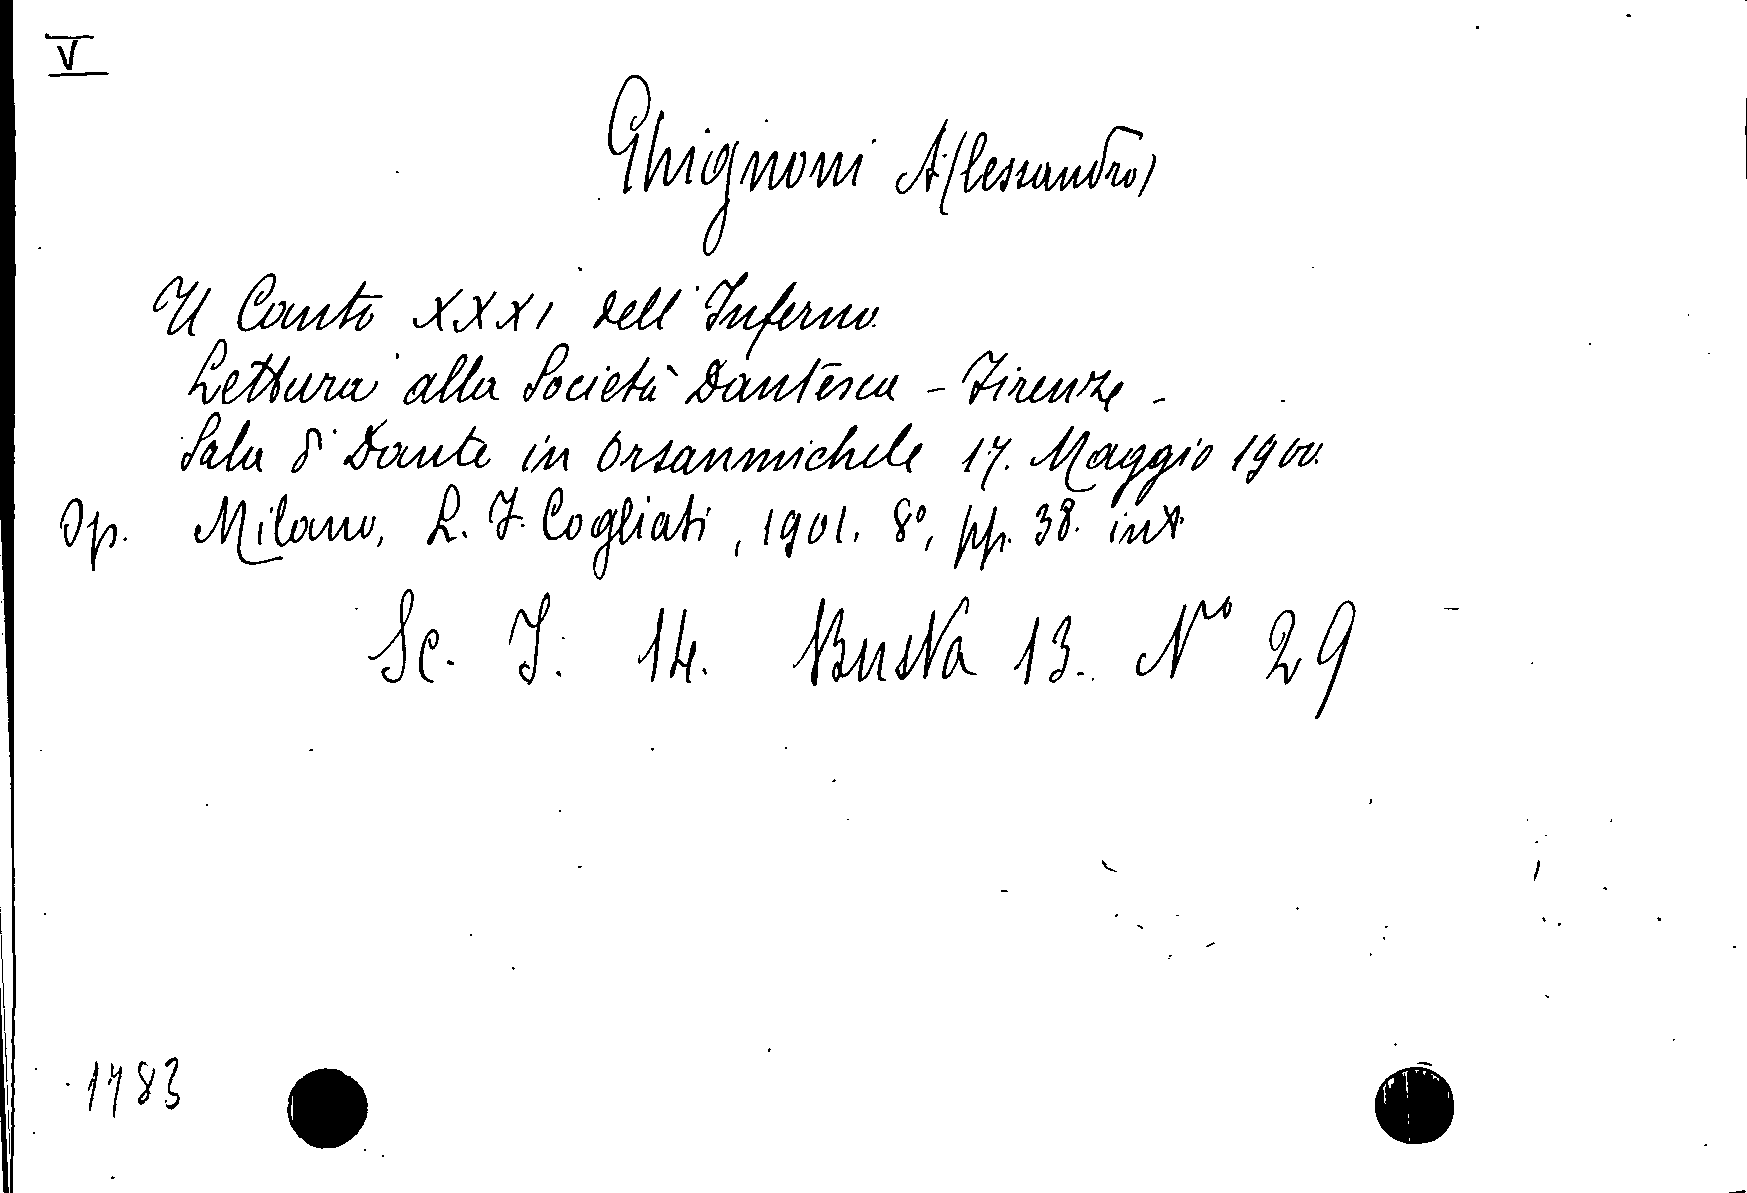 V
Ghignoni A(lessandro)
Il Canto XXXI dell'Inferno.
Lettura alla Società Dantesca - Firenze -
Sala di Dante in Orsanmichele 17. Maggio 1900.
Op. Milano, L. F. Cogliati, 1901. 8°, pp. 38. int.
Sc. I. 14. Busta 13. N° 29
1783